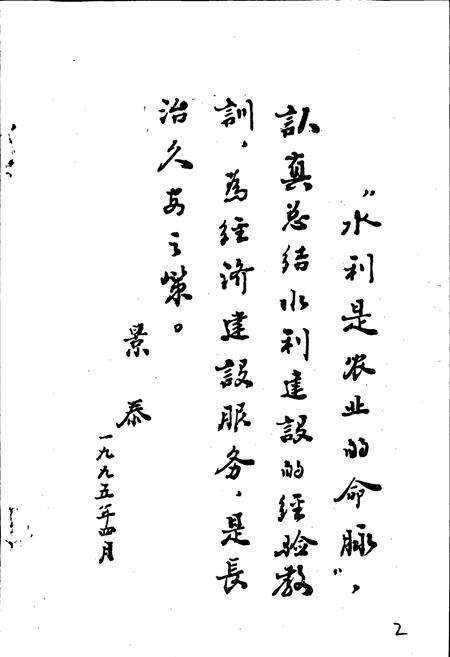 “水利是农业的命脉”，
认真总结水利建设的经验教
训，為经济建設服务，是長
治久安之策。
景泰
一九九五年四月
2